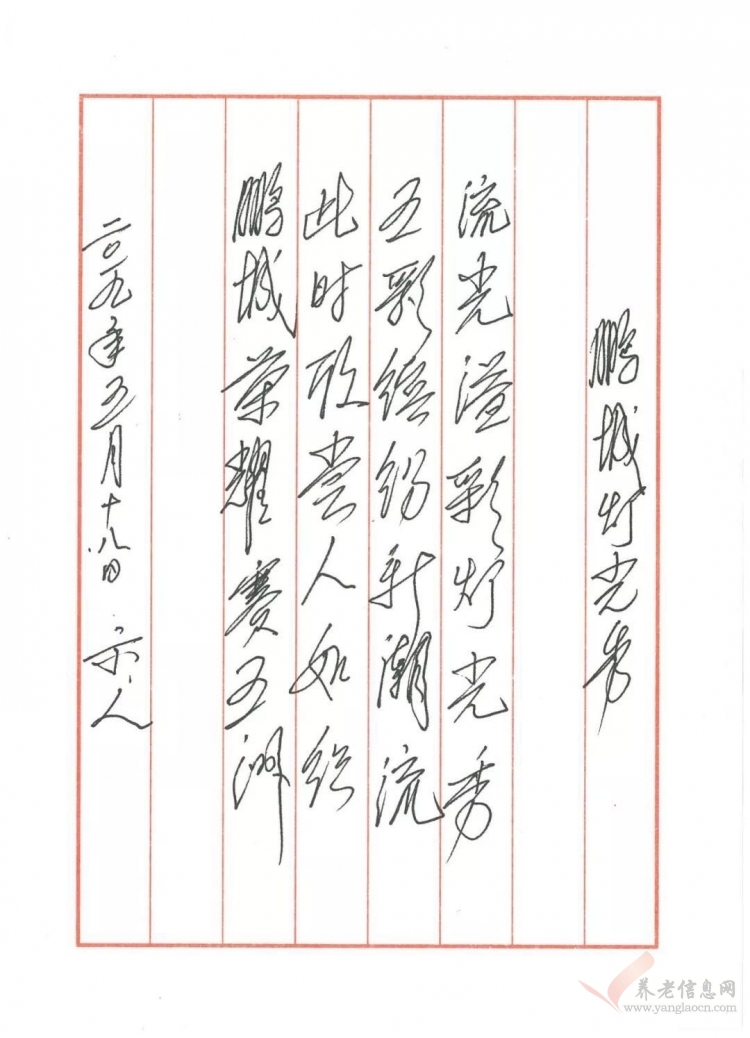 鹏城灯光秀
流光溢彩灯光秀
五彩缤纷新潮流
此时赏人如织
鹏城荣耀赛五洲
二〇一九年五月十八日 人
养老信息网
www.yanglaocn.com